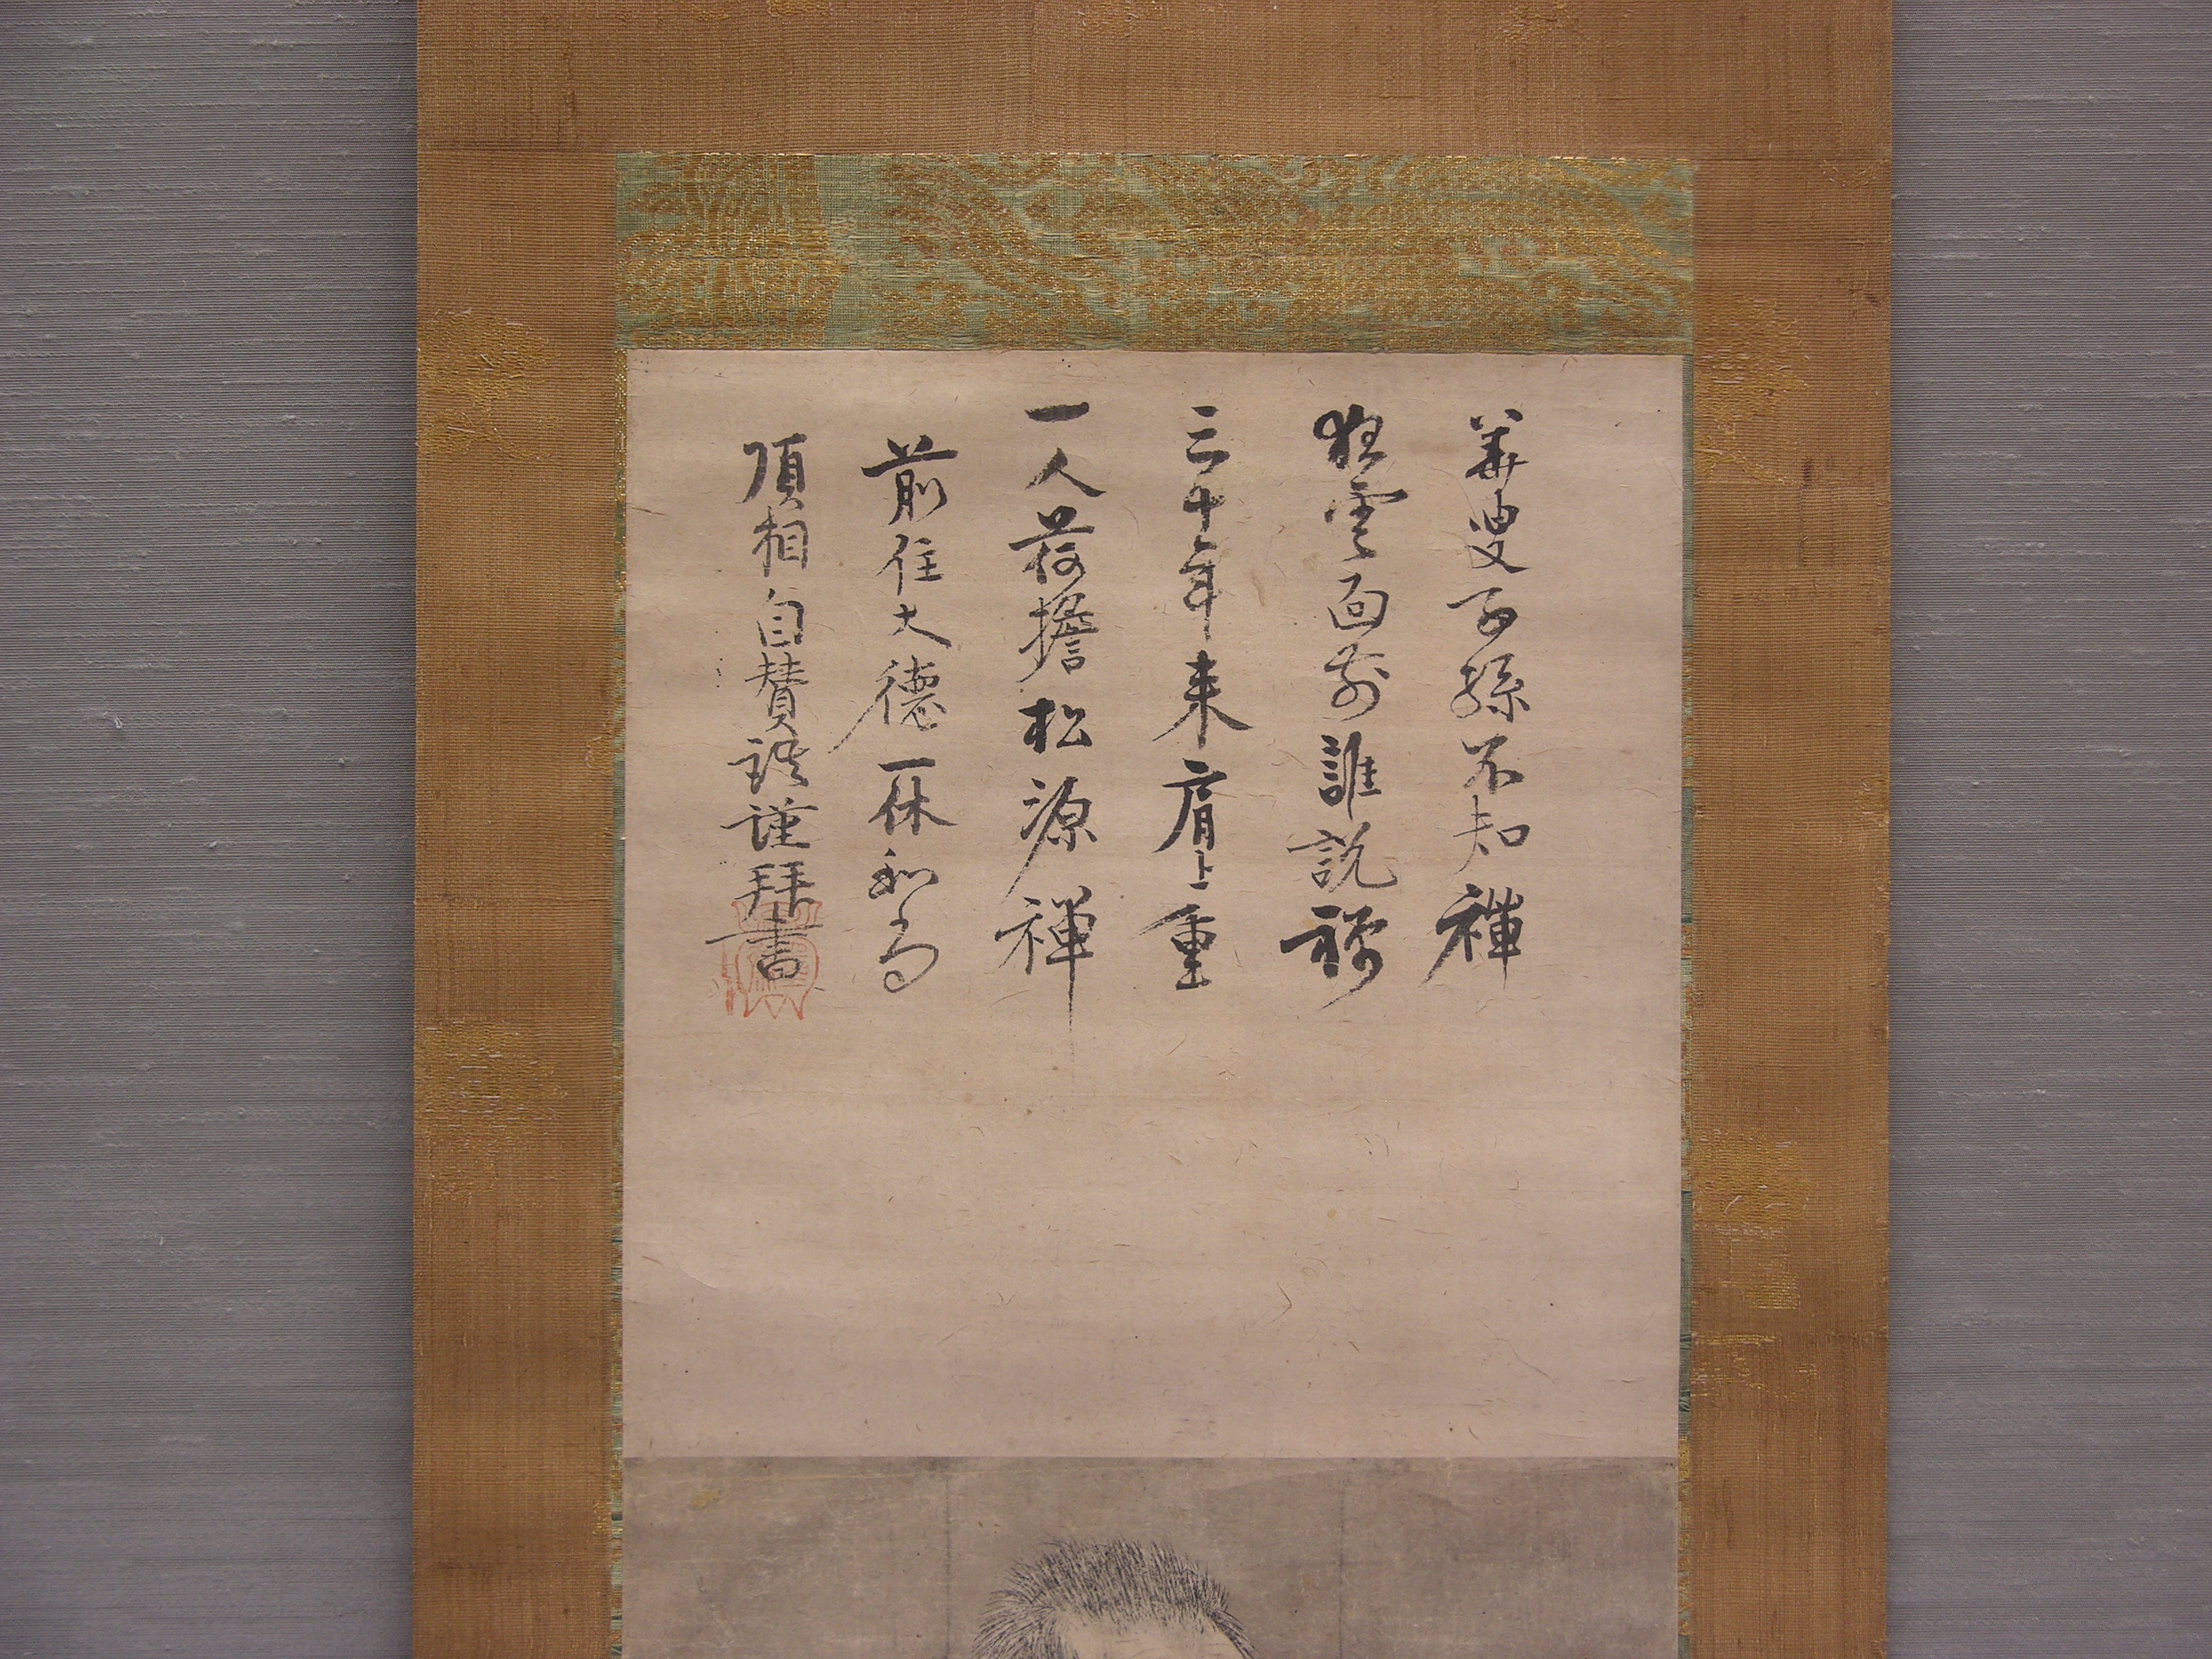 華叟子孫不知禅
狂雲面前誰説禅
三十年来肩上重
一人荷擔松源禅
前住大徳一休和尚
頂相自賛謹拜書